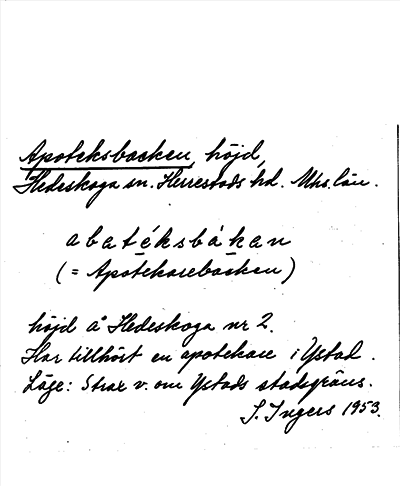 Apoteksbacken, höjd,
Hedeskoga sn. Herrestads hd. Mhs. län.
abatéksbákan
(= Apotekarebacken)
höjd å Hedeskoga nr 2.
Har tillhört en apotekare i Ystad.
Läge: Strax v. om Ystads stadsgräns.
S. Ingers 1953.